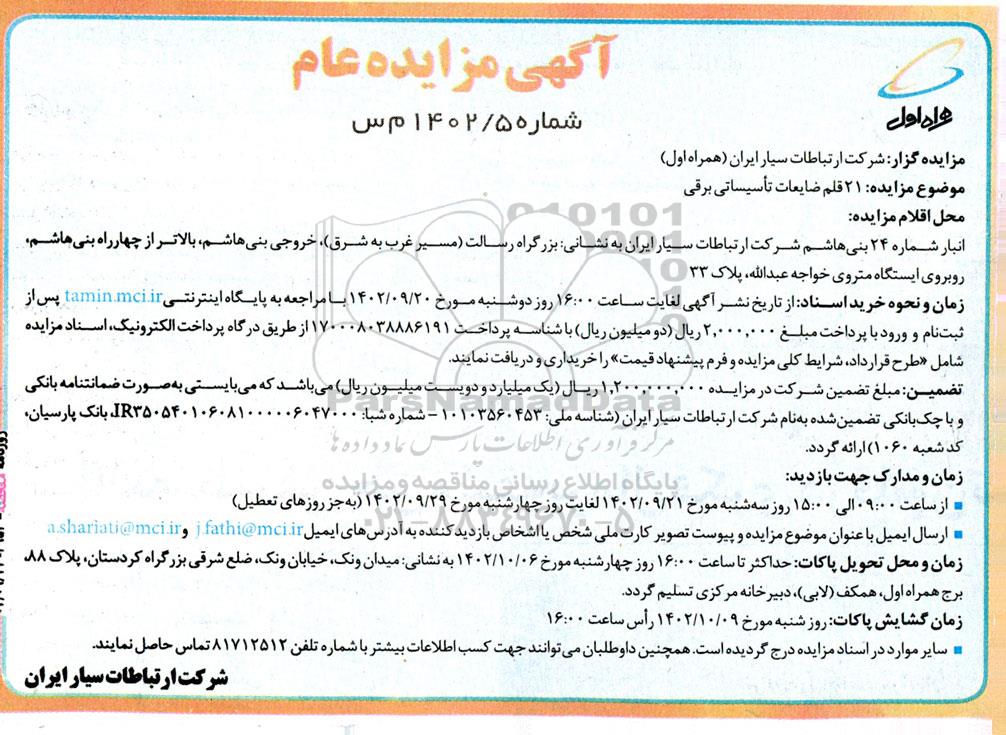 آگهی مزایده عام
شماره ۱۴۰۲/۵ م س
همراه اول
مزایده گزار: شرکت ارتباطات سیار ایران (همراه اول)
موضوع مزایده: ۲۱ قلم ضایعات تأسیساتی برقی
محل اقلام مزایده:
انبار شماره ۲۴ بنی‌هاشم شرکت ارتباطات سیار ایران به نشانی: بزرگراه رسالت (مسیر غرب به شرق)، خروجی بنی‌هاشم، بالاتر از چهارراه بنی‌هاشم،
روبروی ایستگاه متروی خواجه عبدالله، پلاک ۳۳
زمان و نحوه خرید اسناد: از تاریخ نشر آگهی لغایت ساعت ۱۶:۰۰ روز دوشنبه مورخ ۱۴۰۲/۰۹/۲۰ با مراجعه به پایگاه اینترنتی tamin.mci.ir پس از
ثبت‌نام و ورود با پرداخت مبلغ ۲,۰۰۰,۰۰۰ ریال (دو میلیون ریال) با شناسه پرداخت ۱۷۰۰۰۸۰۳۸۸۸۶۱۹۱ از طریق درگاه پرداخت الکترونیک، اسناد مزایده
شامل «طرح قرارداد، شرایط کلی مزایده و فرم پیشنهاد قیمت» را خریداری و دریافت نمایند.
تضمین: مبلغ تضمین شرکت در مزایده ۱,۲۰۰,۰۰۰,۰۰۰ ریال (یک میلیارد و دویست میلیون ریال) می‌باشد که می‌بایستی به‌صورت ضمانتنامه بانکی
و یا چک بانکی تضمین‌شده به‌نام شرکت ارتباطات سیار ایران (شناسه ملی: ۱۰۱۰۳۵۶۰۴۵۳ - شماره شبا: IR۳۵۰۵۴۰۱۰۶۰۸۱۰۰۰۰۰۶۰۴۷۰۰۰، بانک پارسیان،
کد شعبه ۱۰۶۰) ارائه گردد.
زمان و مدارک جهت بازدید:
■ از ساعت ۰۹:۰۰ الی ۱۵:۰۰ روز سه‌شنبه مورخ ۱۴۰۲/۰۹/۲۱ لغایت روز چهارشنبه مورخ ۱۴۰۲/۰۹/۲۹ (به‌جز روزهای تعطیل)
■ ارسال ایمیل با عنوان موضوع مزایده و پیوست تصویر کارت ملی شخص یا اشخاص بازدیدکننده به آدرس‌های ایمیل j.fathi@mci.ir و a.shariati@mci.ir
زمان و محل تحویل پاکات: حداکثر تا ساعت ۱۶:۰۰ روز چهارشنبه مورخ ۱۴۰۲/۱۰/۰۶ به نشانی: میدان ونک، خیابان ونک، ضلع شرقی بزرگراه کردستان، پلاک ۸۸،
برج همراه اول، همکف (لابی)، دبیرخانه مرکزی تسلیم گردد.
زمان گشایش پاکات: روز شنبه مورخ ۱۴۰۲/۱۰/۰۹ رأس ساعت ۱۶:۰۰
■ سایر موارد در اسناد مزایده درج گردیده است. همچنین داوطلبان می‌توانند جهت کسب اطلاعات بیشتر با شماره تلفن ۸۱۷۱۲۵۱۲ تماس حاصل نمایند.
شرکت ارتباطات سیار ایران
ParsNamadData
مرکز فرآوری اطلاعات پارس نماد داده ها
پایگاه اطلاع رسانی مناقصه و مزایده
۰۲۱-۸۸۳۴۹۶۷۰-۵